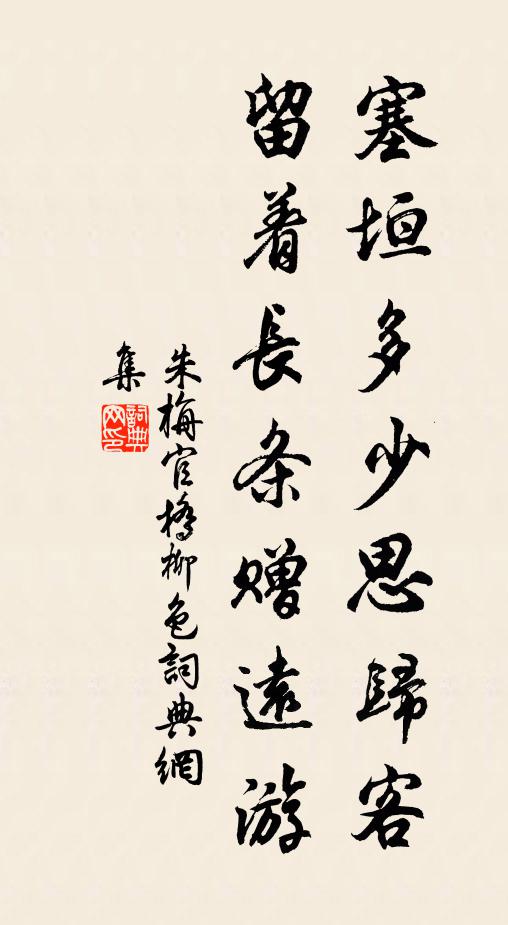 塞垣多少思歸客
留着長条贈遠游
朱梅官橋柳色詞典網
集
詞典
网印